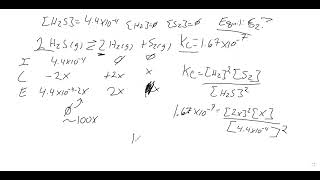 [H₂S]=4.4x10⁻⁴ [H₂]=∅ [S₂]=∅ Equil: S₂?
2 H₂S(g) ⇌ 2 H₂(g) + S₂(g) Kc=1.67x10⁻⁷
I 4.4x10⁻⁴ ∅ ∅
C -2x +2x x
E 4.4x10⁻⁴-2x 2x x
Kc=[H₂]²[S₂]
[H₂S]²
∅
~100x
1.67x10⁻⁷=[2x]²[x]
[4.4x10⁻⁴]²